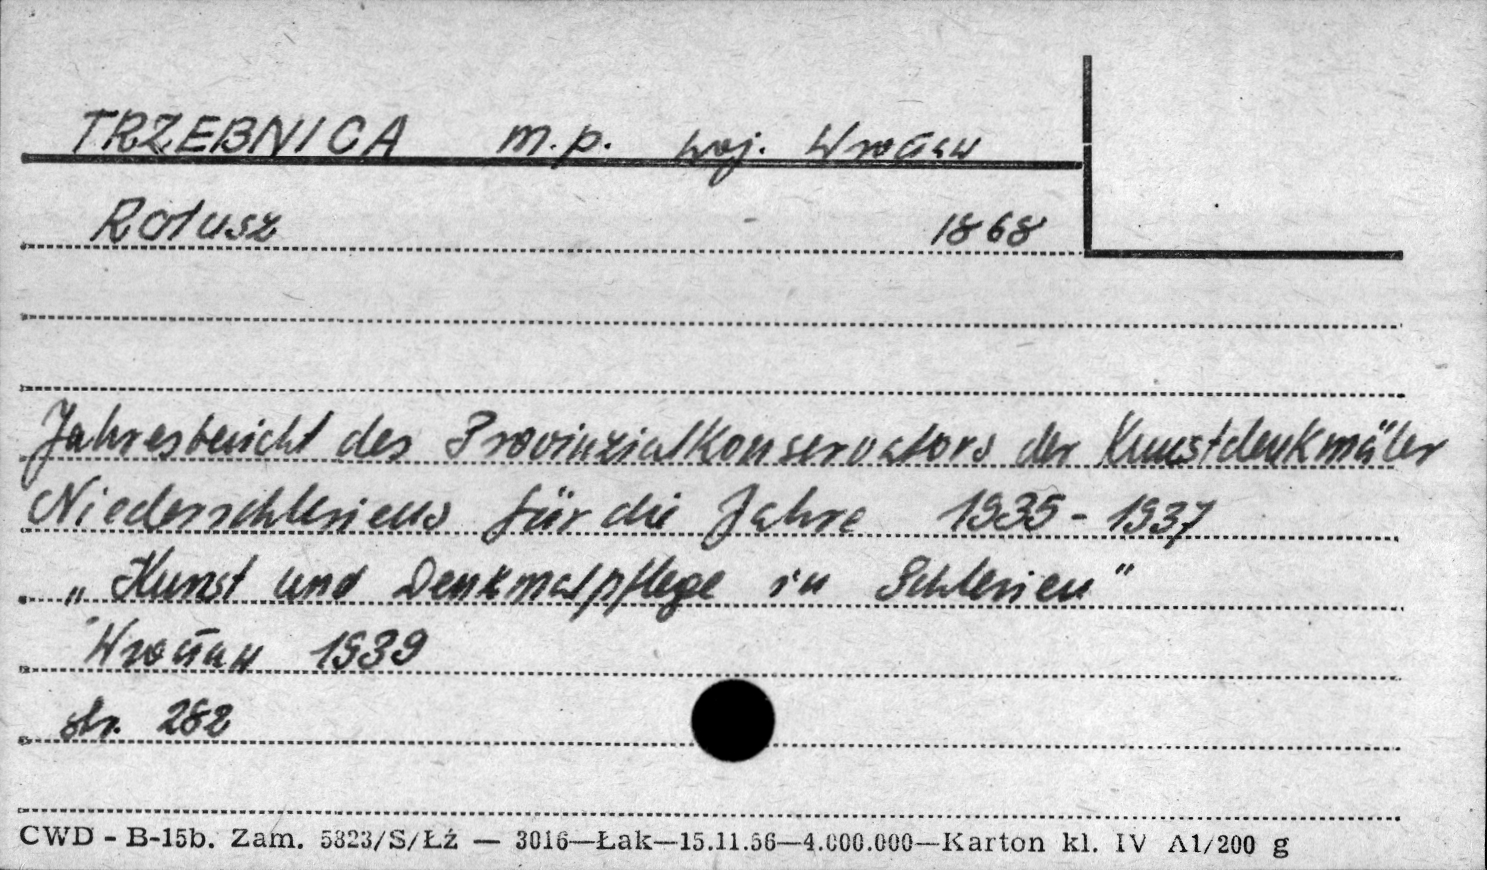 TRZEBNICA m.p. woj. Wrocław
Ratusz 1868
Jahresbericht des Provinzialkonservators der Kunstdenkmäler
Niederschlesiens für die Jahre 1935-1937
„Kunst und Denkmalpflege in Schlesien"
Wrocław 1939
str. 282
CWD - B-15b. Zam. 5823/S/Łź — 3016—Łak—15.11.56—4.000.000—Karton kl. IV A1/200 g